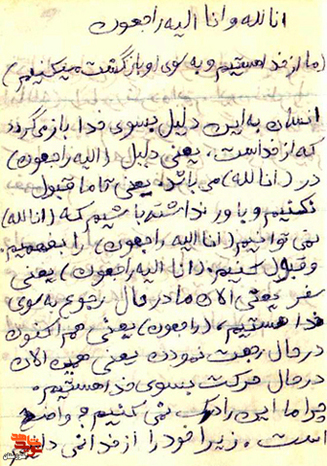 انا لله و انا الیه راجعون
(ما از خدا هستیم و به سوی او بازگشت میکنیم)
انسان به این دلیل بسوی خدا باز می گردد
که از خداست، یعنی دلیل (الیه راجعون)
در (انا لله) می باشد، یعنی تا ما قبول
نکنیم و باور نداشته باشیم که (انا لله)
نمی توانیم (انا الیه راجعون) را بفهمیم
و قبول کنیم. (انا الیه راجعون) یعنی
سفر یعنی الان ما در حال رجوع به سوی
خدا هستیم، (راجعون) یعنی هم اکنون
در حال رجعت نمودن یعنی همین الان
در حال حرکت بسوی خدا هستیم.
چرا ما این را درک نمی کنیم؟ واضح
است. زیرا خود را از خدا نمی دانیم